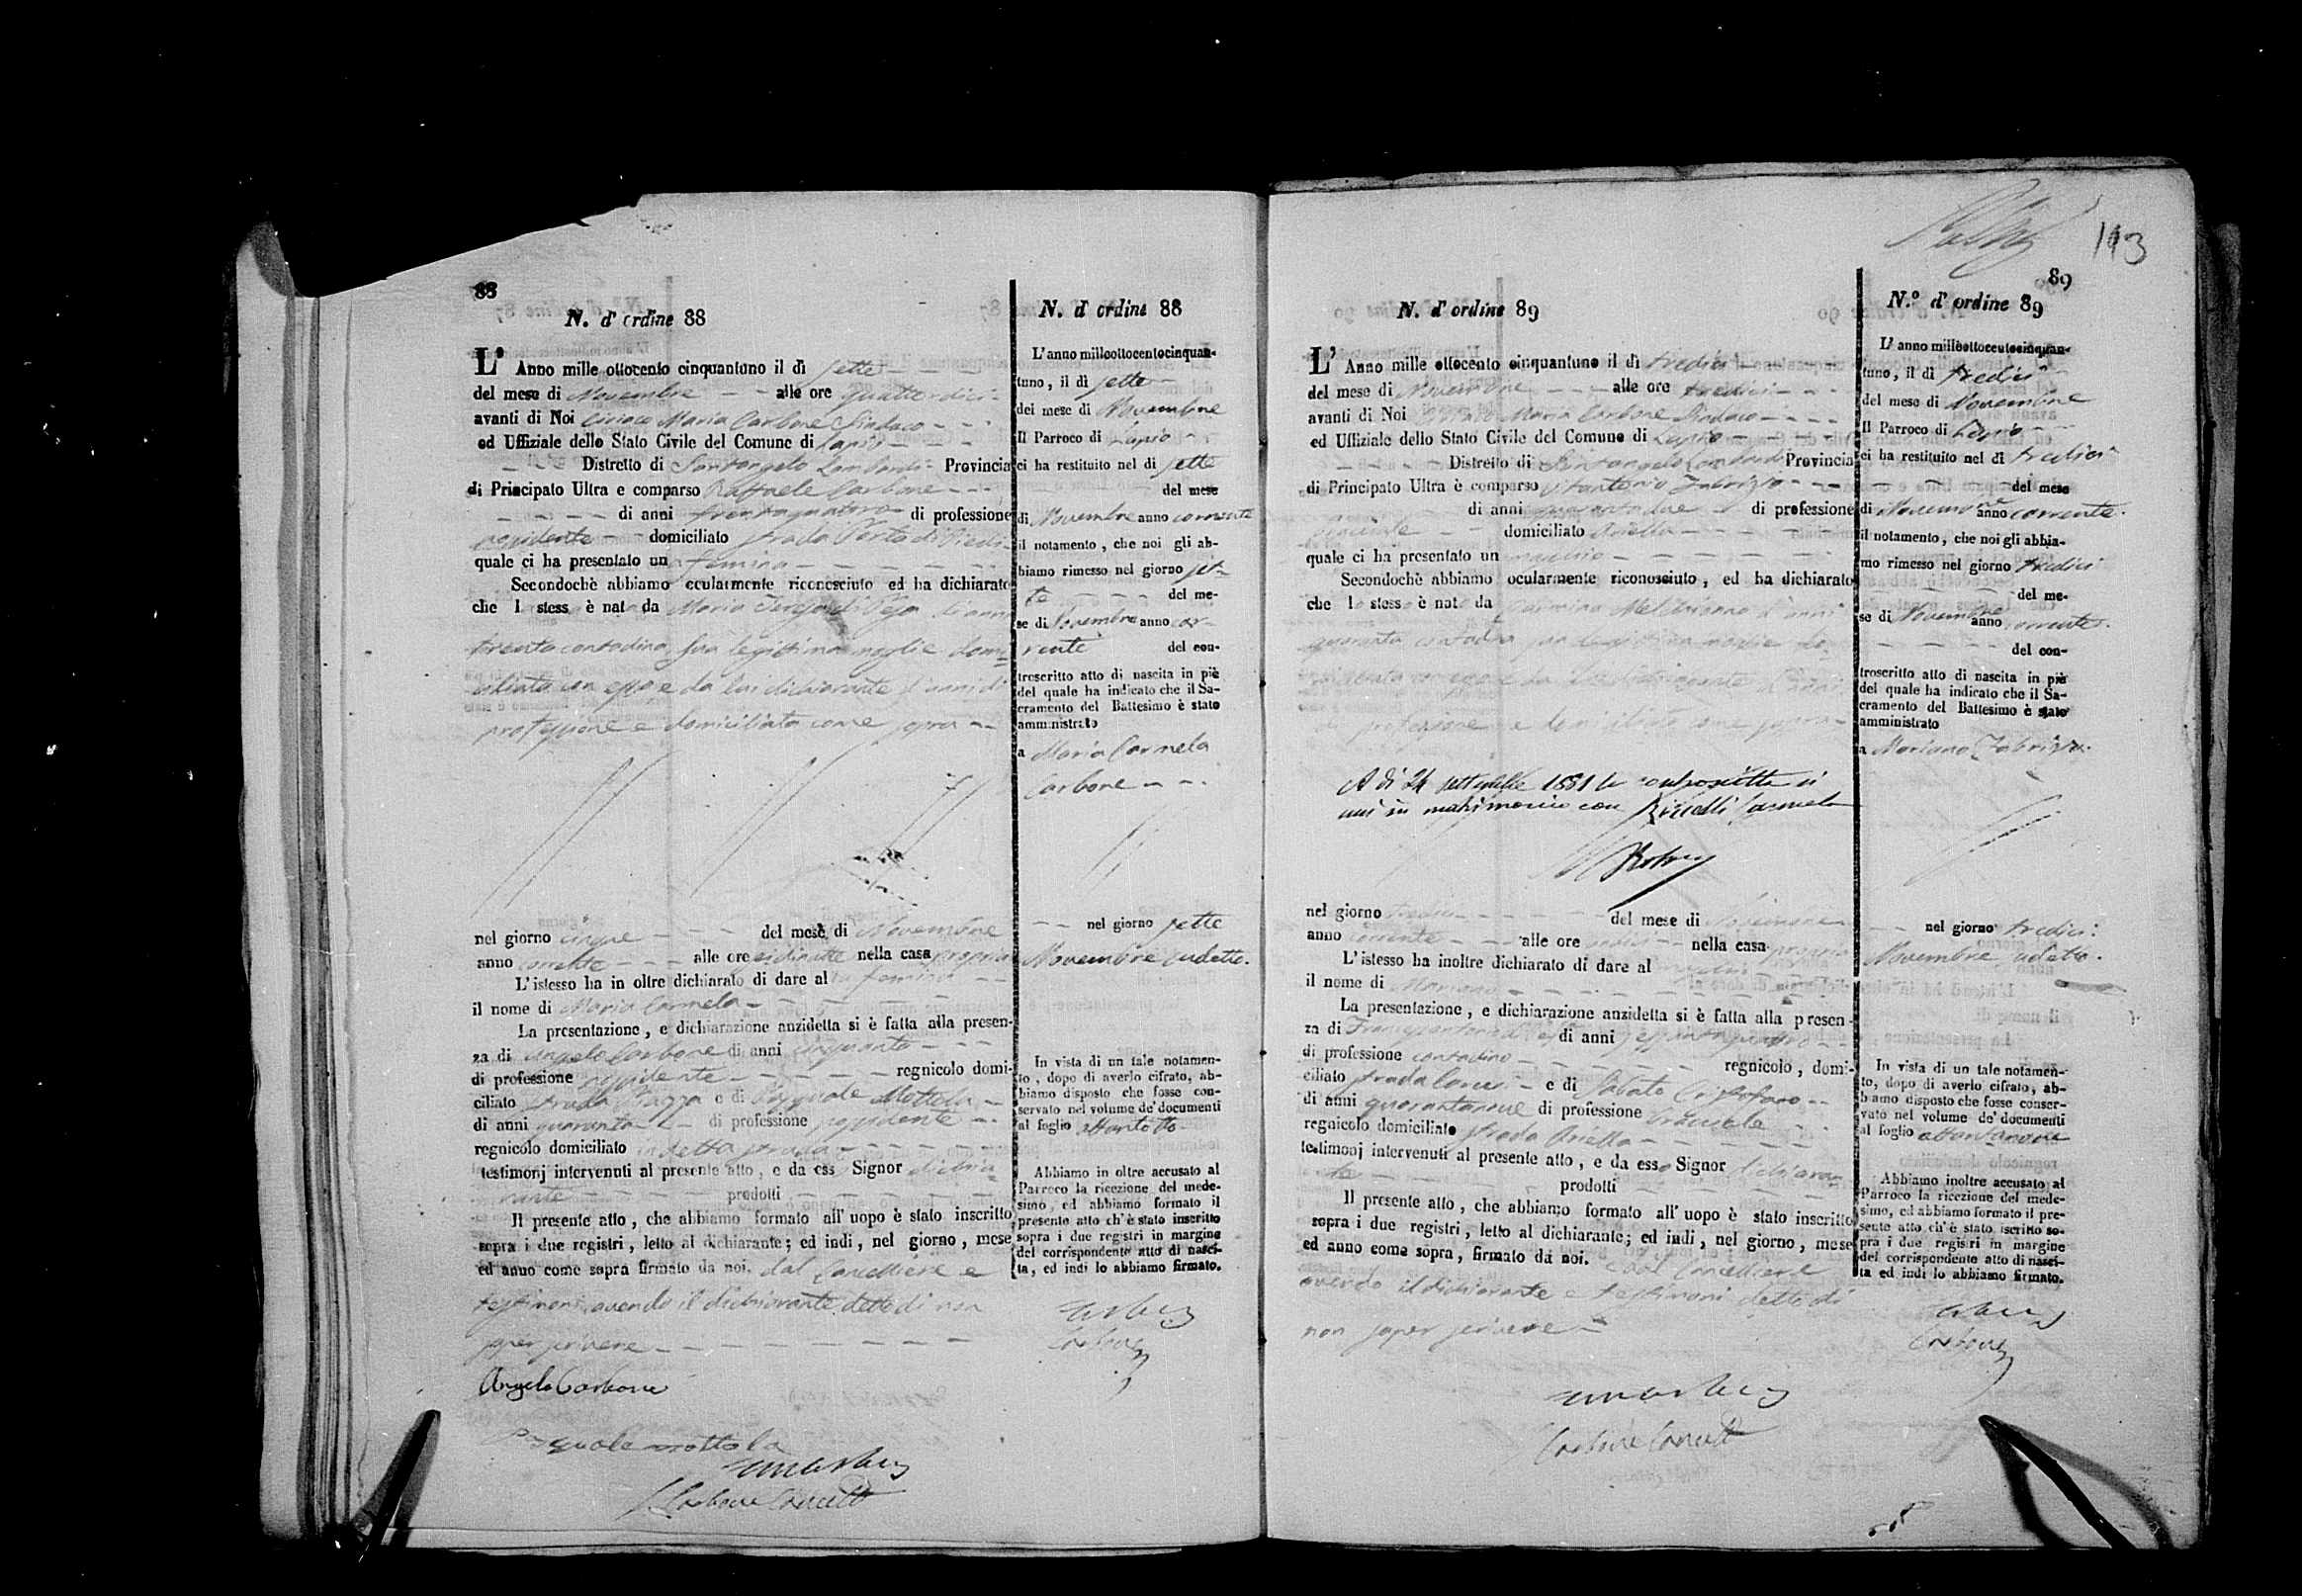 88
N. d' ordine 88
L' Anno mille ottocento cinquantuno il di sette
del mese di Novembre alle ore quattordici
avanti di Noi Ciriaco Maria Carbone Sindaco
ed Uffiziale dello Stato Civile del Comune di Lapio
Distretto di Santangelo Lombardi Provincia
di Principato Ultra e comparso Raffaele Carbone
di anni trentaquattro di professione
possidente domiciliato strada Porta di Piedi
quale ci ha presentato una femina
Secondochè abbiamo ocularmente riconosciuto ed ha dichiarato
che l stess è nat da Maria Teresa di Pega d'anni
trenta contadina sua legittima moglie domi
ciliata con esso e da lui dichiarante d'anni di
professione e domiciliato come sopra
nel giorno cinque del mese di Novembre
anno corrente alle ore nella casa propria
L' istesso ha in oltre dichiarato di dare al la femina
il nome di Maria Carmela
La presentazione, e dichiarazione anzidetta si è fatta alla presen-
za di Angelo Carbone di anni cinquanta
di professione possidente regnicolo domi-
ciliato strada Piazza e di Pasquale Mottola
di anni quaranta di professione possidente
regnicolo domiciliato in detta strada
testimonj intervenuti al presente atto, e da ess Signor dichia
rante prodotti
Il presente atto, che abbiamo formato all' uopo è stato inscritto
sopra i due registri, letto al dichiarante; ed indi, nel giorno, mese
ed anno come sopra firmato da noi. dal Cancelliere e
testimoni avendo il dichiarante detto di non
saper scrivere
Angelo Carbone
Pasquale Mottola
Carbone Cancell
N. d' ordine 88
L' anno milleottocentocinquan-
tuno, il di sette
del mese di Novembre
Il Parroco di Lapio
ci ha restituito nel di sette
del mese
di Novembre anno corrente
il notamento, che noi gli ab-
biamo rimesso nel giorno set-
te del me-
se di Novembre anno cor-
rente del con-
troscritto atto di nascita in piè
del quale ha indicato che il Sa-
cramento del Battesimo è stato
amministrato
a Maria Carmela
Carbone
nel giorno sette
Novembre sudetto.
In vista di un tale notamen-
to, dopo di averlo cifrato, ab-
biamo disposto che fosse con-
servato nel volume de' documenti
al foglio ottantotto
Abbiamo in oltre accusato al
Parroco la ricezione del mede-
simo, ed abbiamo formato il
presente atto ch' è stato inscritto
sopra i due registri in margine
del corrispondente atto di nasci-
ta, ed indi lo abbiamo firmato.
Carbone
113
89
N. d' ordine 89
L' Anno mille ottocento cinquantuno il di tredici
del mese di Novembre alle ore tredici
avanti di Noi Maria Carbone Sindaco
ed Uffiziale dello Stato Civile del Comune di Lapio
Distretto di Santangelo Lombardi Provincia
di Principato Ultra è comparso Vitantonio Fabrizio
di anni quarantadue di professione
domiciliato Ariella
quale ci ha presentato un maschio
Secondochè abbiamo ocularmente riconosciuto, ed ha dichiarato
che lo stesso è nato da Carmina d'anni
quaranta contadina sua legittima moglie do
professione e domiciliato come sopra
A di 24 settembre 1881 lo controscritto si
unì in matrimonio con Carmela
nel giorno del mese di Novembre
anno corrente alle ore nella casa propria
L' istesso ha inoltre dichiarato di dare al
il nome di Mariano
La presentazione, e dichiarazione anzidetta si è fatta alla presen-
za di di anni
di professione contadino regnicolo, domi-
ciliato strada e di Sabato Cristofaro
di anni quarantanove di professione bracciale
regnicolo domiciliato strada Ariella
testimonj intervenuti al presente atto, e da esso Signor dichiaran
te prodotti
Il presente atto, che abbiamo formato all' uopo è stato inscritto
sopra i due registri, letto al dichiarante; ed indi, nel giorno, mese
ed anno come sopra, firmato da noi. e dal Cancelliere
avendo il dichiarante e testimoni detto di
non saper scrivere
Carbone Cancell
N.° d' ordine 89
L' anno milleottocentocinquan-
tuno, il di tredici
del mese di Novembre
Il Parroco di Lapio
ci ha restituito nel di tredici
del mese
di Novembre anno corrente.
il notamento, che noi gli abbia-
mo rimesso nel giorno tredici
del me-
se di Novembre anno corrente.
del con-
troscritto atto di nascita in piè
del quale ha indicato che il Sa-
cramento del Battesimo è stato
amministrato
a Mariano Fabrizio.
nel giorno tredici
Novembre sudetto.
In vista di un tale notamen-
to, dopo di averlo cifrato, ab-
biamo disposto che fosse conser-
vato nel volume de' documenti
al foglio ottantanove
Abbiamo inoltre accusato al
Parroco la ricezione del mede-
simo, ed abbiamo formato il pre-
sente atto ch' è stato iscritto so-
pra i due registri in margine
del corrispondente atto di nasci-
ta ed indi lo abbiamo firmato.
Carbone